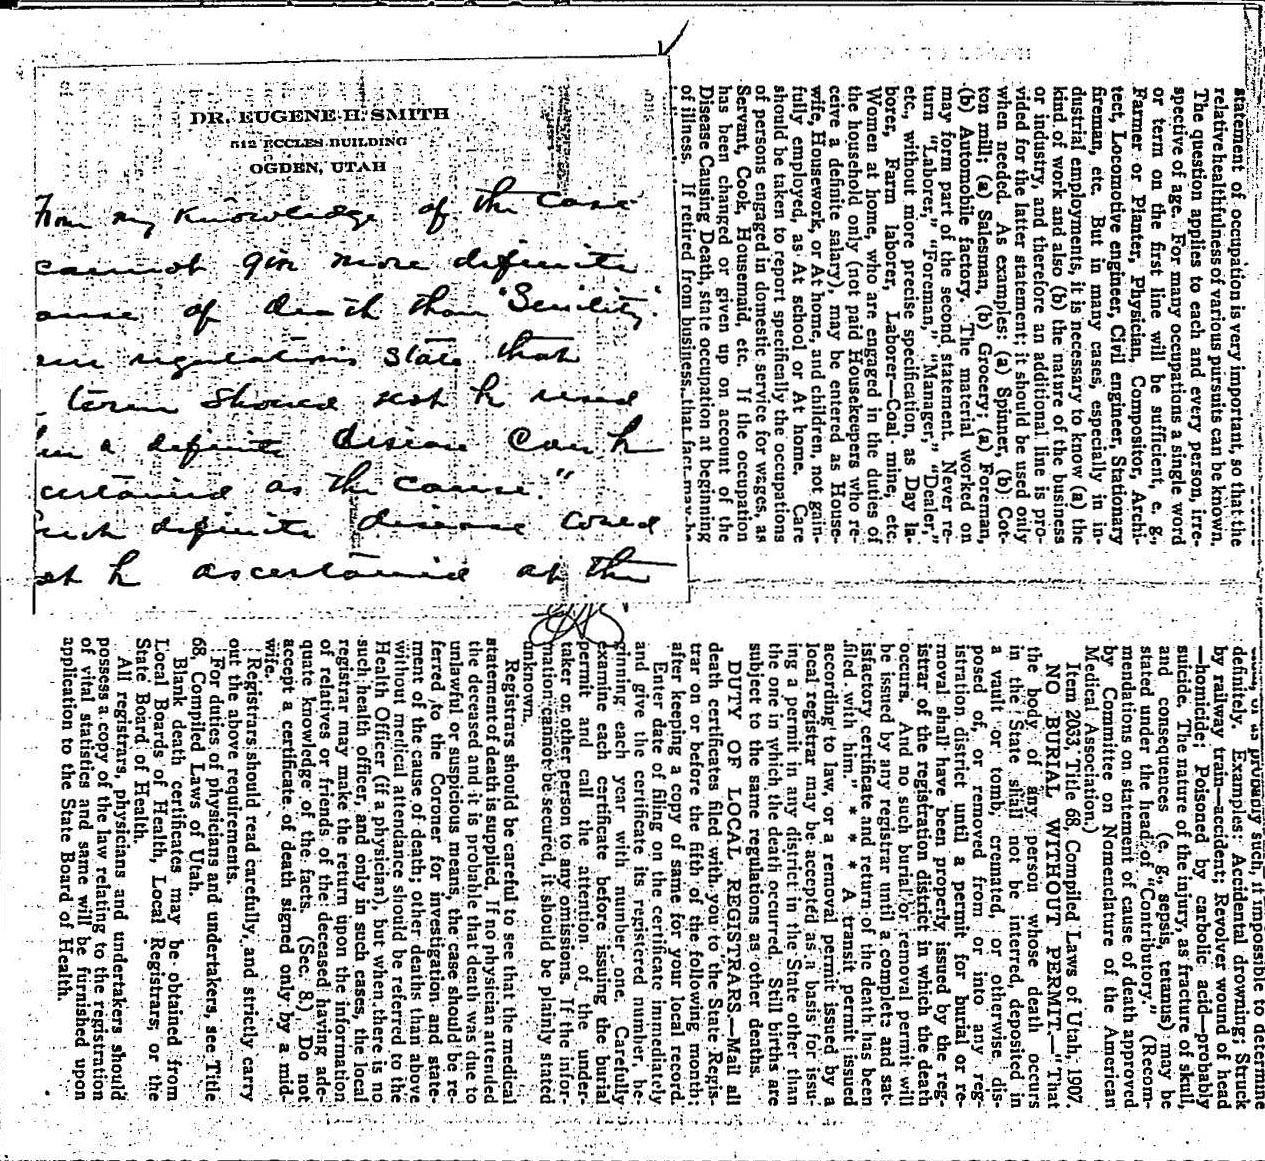 DR. EUGENE H. SMITH
512 ECCLES BUILDING
OGDEN, UTAH
From my knowledge of the case
cannot give more definite
cause of death than "Senility".
regulations state that
term should not be used
in a definite disease can be
ascertained as the cause."
Such definite disease could
not be ascertained at the
statement of occupation is very important, so that the
relative healthfulness of various pursuits can be known.
The question applies to each and every person, irre-
spective of age. For many occupations a single word
or term on the first line will be sufficient, e. g.,
Farmer or Planter, Physician, Compositor, Archi-
tect, Locomotive engineer, Civil engineer, Stationary
fireman, etc. But in many cases, especially in in-
dustrial employments, it is necessary to know (a) the
kind of work and also (b) the nature of the business
or industry, and therefore an additional line is pro-
vided for the latter statement; it should be used only
when needed. As examples: (a) Spinner, (b) Cot-
ton mill; (a) Salesman, (b) Grocery; (a) Foreman,
(b) Automobile factory. The material worked on
may form part of the second statement. Never re-
turn "Laborer," "Foreman," "Manager," "Dealer,"
etc., without more precise specification, as Day la-
borer, Farm laborer, Laborer—Coal mine, etc.
Women at home, who are engaged in the duties of
the household only (not paid Housekeepers who re-
ceive a definite salary), may be entered as House-
wife, Housework, or At home, and children, not gain-
fully employed, as At school or At home. Care
should be taken to report specifically the occupations
of persons engaged in domestic service for wages, as
Servant, Cook, Housemaid, etc. If the occupation
has been changed or given up on account of the
Disease Causing Death, state occupation at beginning
of illness. If retired from business, that fact may be
such, if impossible to determine
definitely. Examples: Accidental drowning; Struck
by railway train—accident; Revolver wound of head
—homicide; Poisoned by carbolic acid—probably
suicide. The nature of the injury, as fracture of skull,
and consequences (e. g., sepsis, tetanus) may be
stated under the head of "Contributory." (Recom-
mendations on statement of cause of death approved
by Committee on Nomenclature of the American
Medical Association.)
Item 2033, Title 68, Compiled Laws of Utah, 1907.
NO BURIAL WITHOUT PERMIT.—"That
the body of any person whose death occurs
in the State shall not be interred, deposited in
a vault or tomb, cremated, or otherwise dis-
posed of, or removed from or into any reg-
istration district until a permit for burial or re-
moval shall have been properly issued by the reg-
istrar of the registration district in which the death
occurs. And no such burial or removal permit will
be issued by any registrar until a complete and sat-
isfactory certificate and return of the death has been
filed with him." * * * A transit permit issued
according to law, or a removal permit issued by a
local registrar may be accepted as a basis for issu-
ing a permit in any district in the State other than
the one in which the death occurred. Still births are
subject to the same regulations as other deaths.
DUTY OF LOCAL REGISTRARS—Mail all
death certificates filed with you to the State Regis-
trar on or before the fifth of the following month;
after keeping a copy of same for your local record.
Enter date of filing on the certificate immediately
and give the certificate its registered number, be-
ginning each year with number one. Carefully
examine each certificate before issuing the burial
permit and call the attention of the under-
taker or other person to any omissions. If the infor-
mation cannot be secured, it should be plainly stated
unknown.
Registrars should be careful to see that the medical
statement of death is supplied. If no physician attended
the deceased and it is probable that death was due to
unlawful or suspicious means, the case should be re-
ferred to the Coroner for investigation and state-
ment of the cause of death; other deaths than above
without medical attendance should be referred to the
Health Officer (if a physician), but when there is no
such health officer, and only in such cases, the local
registrar may make the return upon the information
of relatives or friends of the deceased having ade-
quate knowledge of the facts. (Sec. 8.) Do not
accept a certificate of death signed only by a mid-
wife.
Registrars should read carefully, and strictly carry
out the above requirements.
For duties of physicians and undertakers, see Title
68, Compiled Laws of Utah.
Blank death certificates may be obtained from
Local Boards of Health, Local Registrars, or the
State Board of Health.
All registrars, physicians and undertakers should
possess a copy of the law relating to the registration
of vital statistics and same will be furnished upon
application to the State Board of Health.